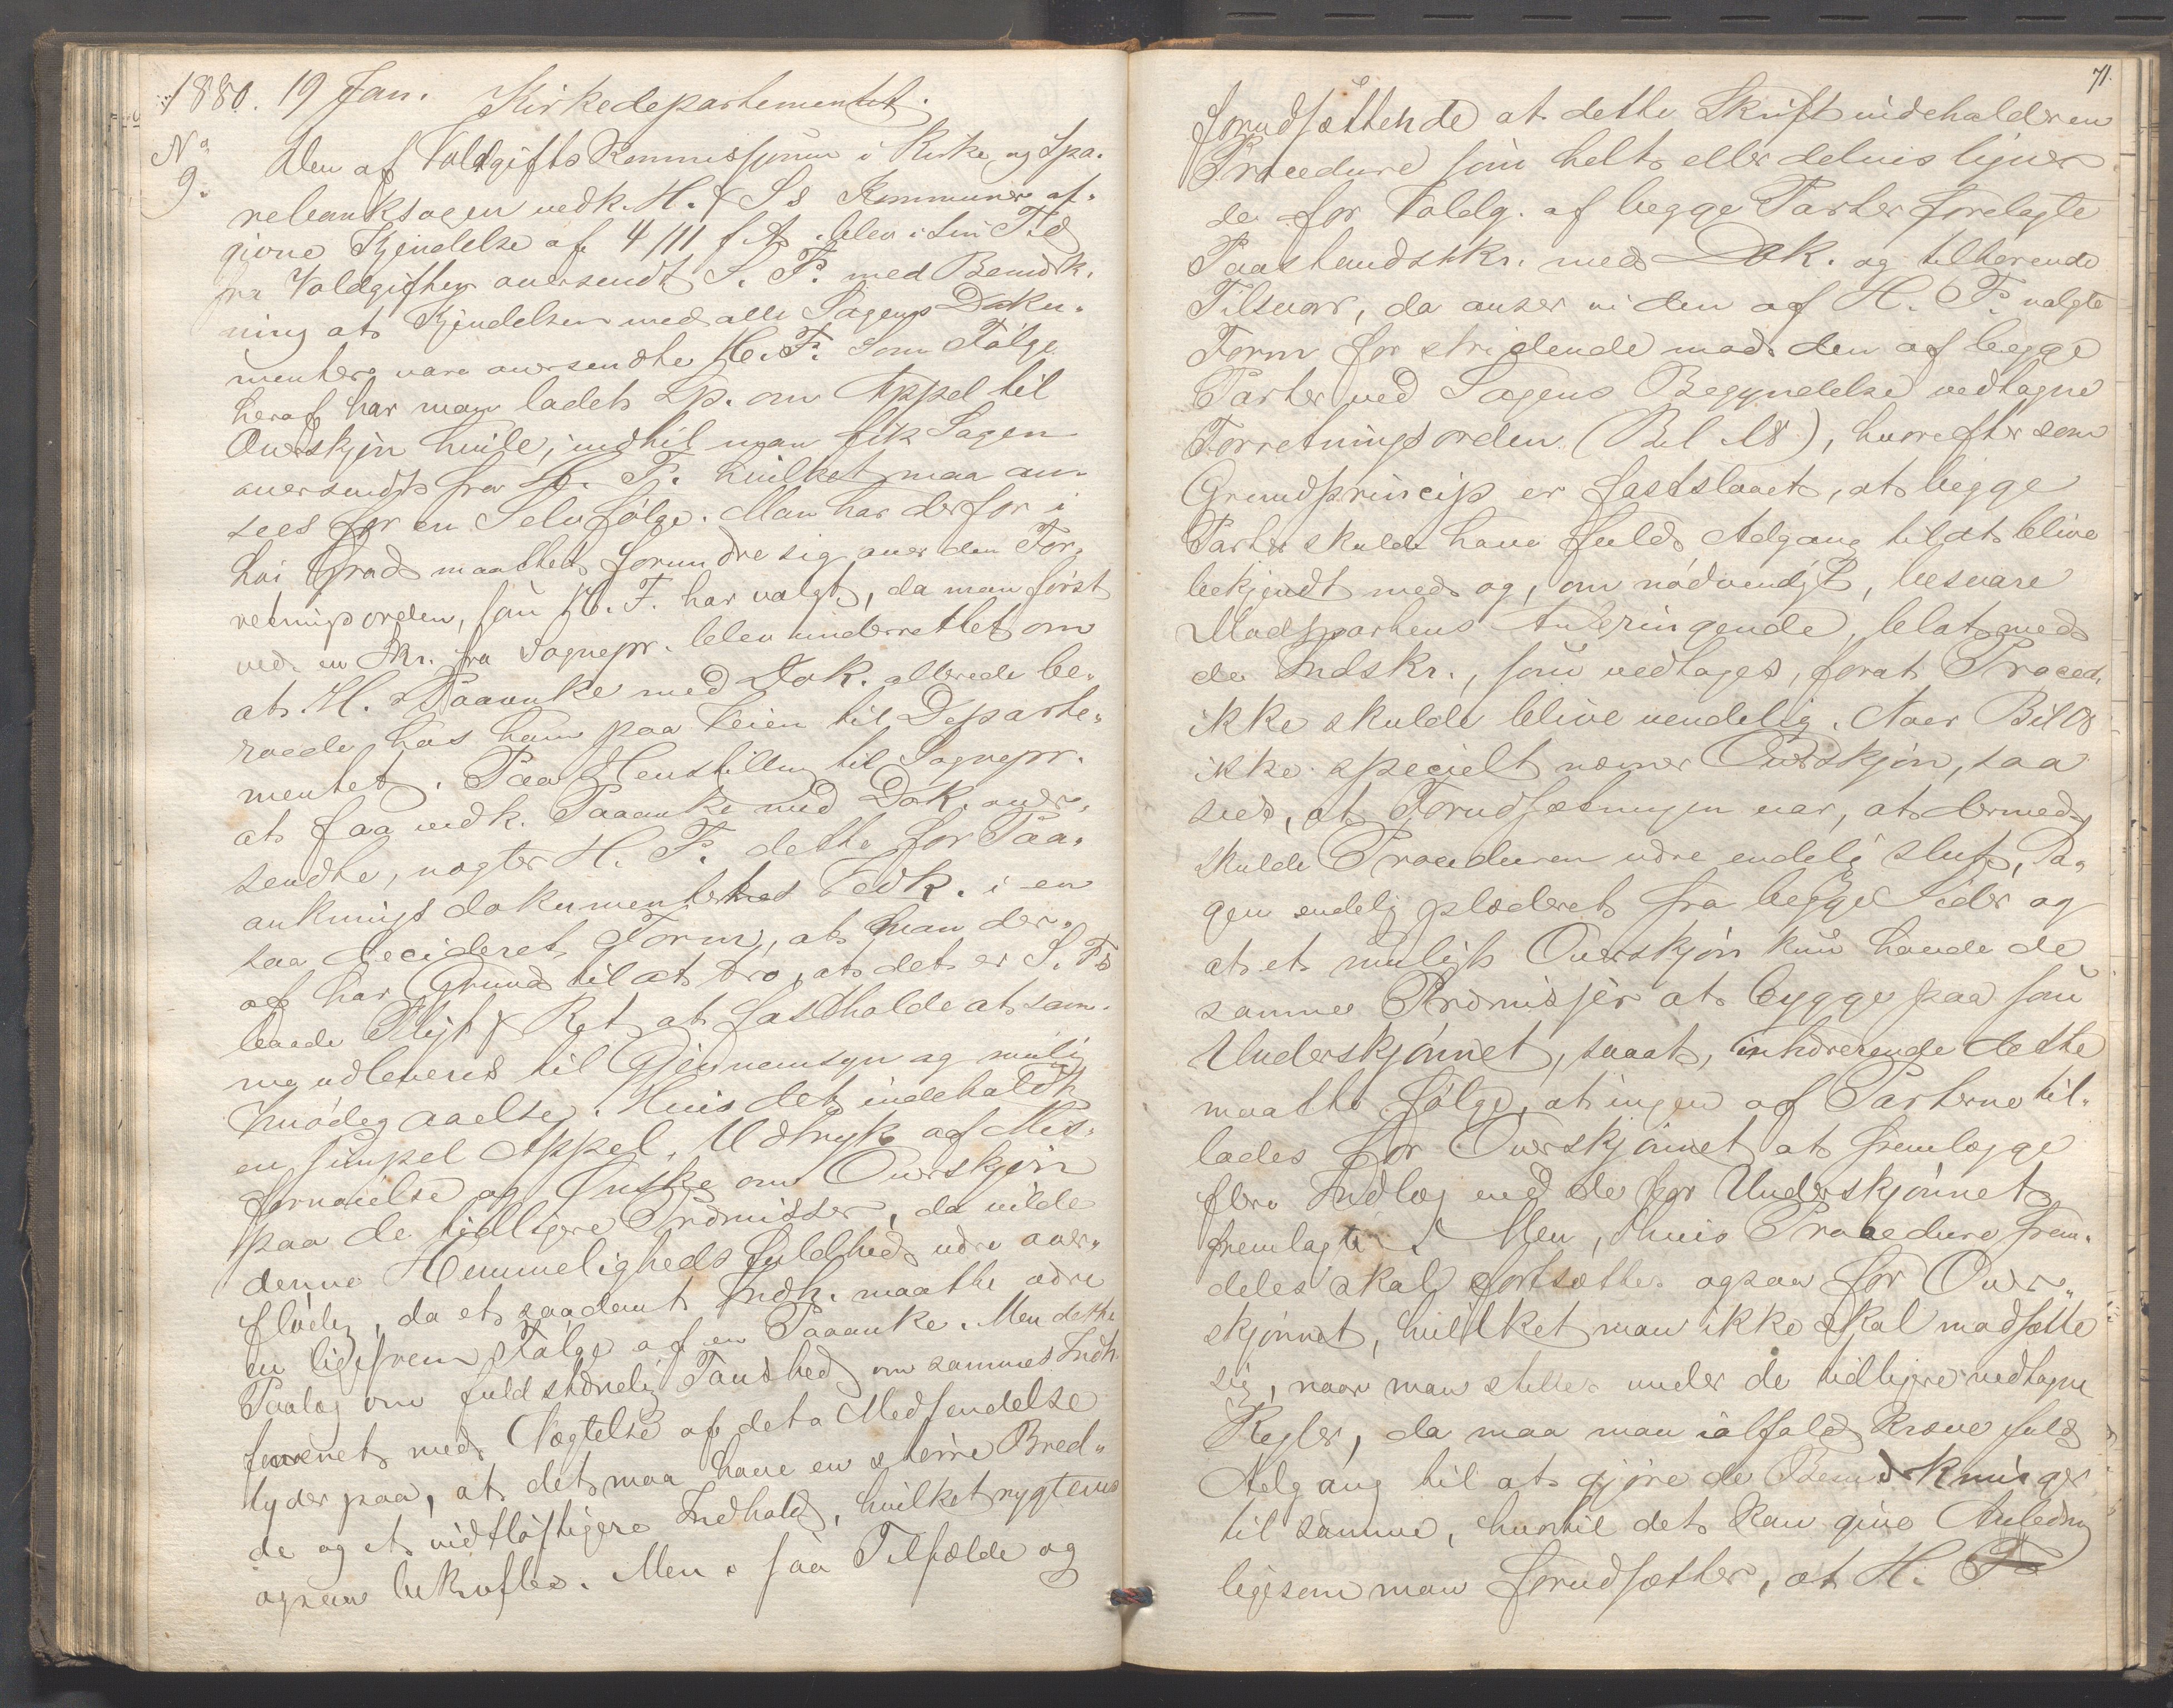 1880. 19 Jan. Kirkedepartementet.
No 9. Den af Voldgifts Kommissjonen i Kirke og Spa-
rebanksagen vedk. H. & Ss Kommuner af-
givne Kjendelse af 4/11 f. A. blev i sin Tid
fra Voldgiften oversendt S. F. med Bemærk-
ning at Kjendelsen med alle Sagens Doku-
menter vare oversendte H. F. Som Følge
heraf har man ladet Sp. om Appel til
Overskjøn hvile, indtil man fik Sagen
oversendt fra H. F. hvilket maa an-
sees for en Selvfølge. Man har derfor i
høi Grad maattet forundre sig over den For-
retningsorden, som H. F. har valgt, da man først
ved en Skr. fra Sognepr. blev underrettet om
at H. s Paaanke med Dok. allerede be-
roede hos ham paa Veien til Departe-
mentet. Paa Henstilling til Sognepr.
at faa vedk. Paaanke med Dok. over-
sendte, nægter H. F. dette for Paa-
ankningsdokumentets Vedk. i en
saa decideret Form, at man der-
af har Grund til at tro, at det er S. Fs
baade Pligt & Ret at fastholde at sam-
me udleveres til Gjennemsyn og mulig
Imødegaaelse. Hvis det indeholdt
en simpel Appel, Udtryk af Mis-
fornøielse og Ønske om Overskjøn
paa de tidligere Præmisser, da vilde
denne Hemmelighedsfuldhed være over-
flødig, da et saadant Indh. maatte være
en ligefrem Følge af en Paaanke. Men dette
Paalæg om fuldstændig Taushed om sammes Indh.
forenet med Nægtelse af deta Medsendelse
tyder paa, at det maa have en større Bred-
de og et vidtløftigere Indhold, hvilket rygtevis
ogsaa bekræftes. Men i saa Tilfælde og
71.
forudsættende at dette Skrift indeholder en
Procedure som helt eller delvis ligner
de for Voldg. af begge Parter forelagte
Paastandsskr. med Dok. og tilhørende
Tilsvar, da anser vi den af H. F. valgte
Form for stridende mod den af begge
Parter ved Sagens Begyndelse vedtagne
Forretningsorden (Bil. 18), hvorefter som
Grundprincip er fastslaaet, at begge
Parter skulde have fuld Adgang til at blive
bekjendt med og, om nødvendigt, besvare
Modpartens Anbringende, blot med
de Indskr., som vedtages, forat Proced.
ikke skulde blive uendelig. Naar Bil 18
ikke specielt nævner Overskjøn, saa
sees, at Forudsætningen var, at dermed
skulde Proceduren være endelig slut, Sa-
gen endelig plæderet fra begge Sider og
at et muligt Overskjøn kun havde de
samme Præmisser at bygge paa som
Underskjønnet, saaat, inhærerende dette
maatte følge, at ingen af Parterne til-
lades for Overskjønnet at fremlægge
flere Indlæg end de for Underskjønnet
fremlagte. Men, hvis Procedure frem-
deles skal fortsættes ogsaa for Over-
skjønnet, hvilket man ikke skal modsætte
sig, naar man stilles under de tidligere vedtagne
Regler, da maa man ialfald kræve fuld
Adgang til at gjøre de Bemærkninger
til samme, hvortil det kan give Anledning
ligesom man forudsætter, at H. F